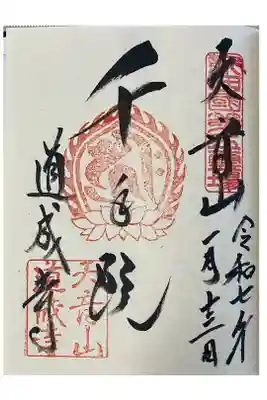 天音山
令和七年
一月十三日
千手院
道成寺
天音山
道成寺